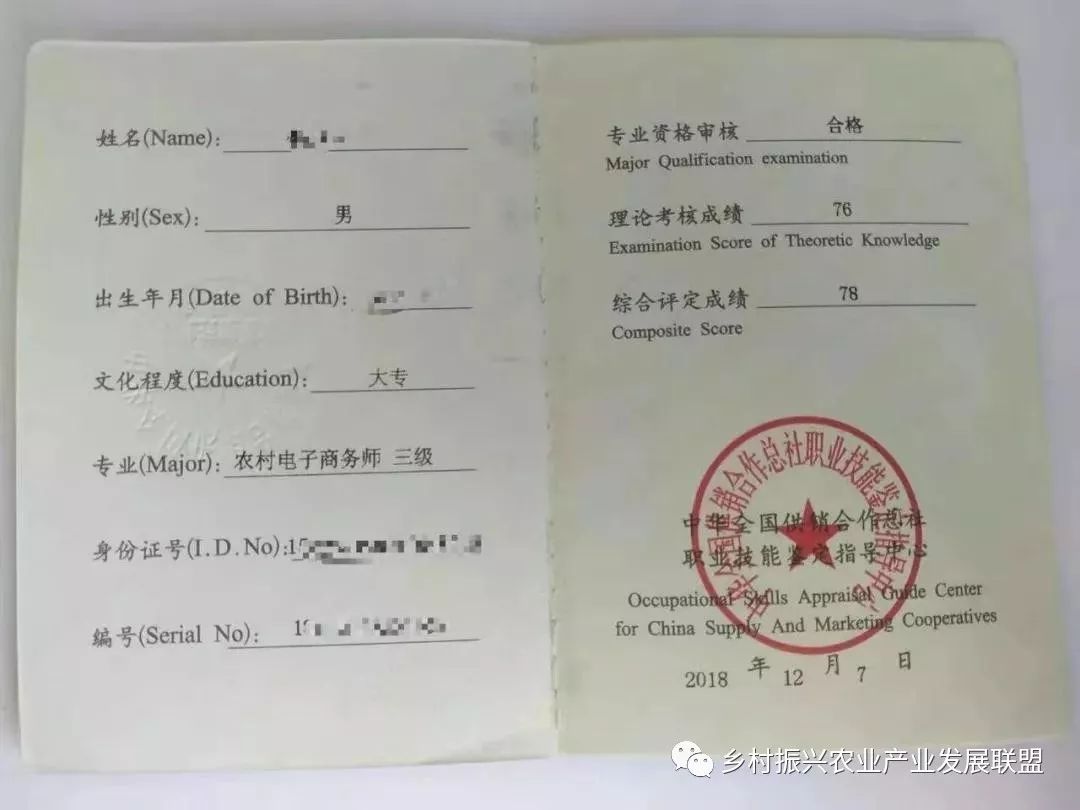 姓名(Name):
性别(Sex): 男
出生年月(Date of Birth):
文化程度(Education): 大专
专业(Major): 农村电子商务师 三级
身份证号(I.D.No):
编号(Serial No):
专业资格审核 合格
Major Qualification examination
理论考核成绩 76
Examination Score of Theoretic Knowledge
综合评定成绩 78
Composite Score
中华全国供销合作总社职业技能鉴定指导中心
中华全国供销合作总社
职业技能鉴定指导中心
Occupational Skills Appraisal Guide Center
for China Supply And Marketing Cooperatives
2018 年 12 月 7 日
乡村振兴农业产业发展联盟